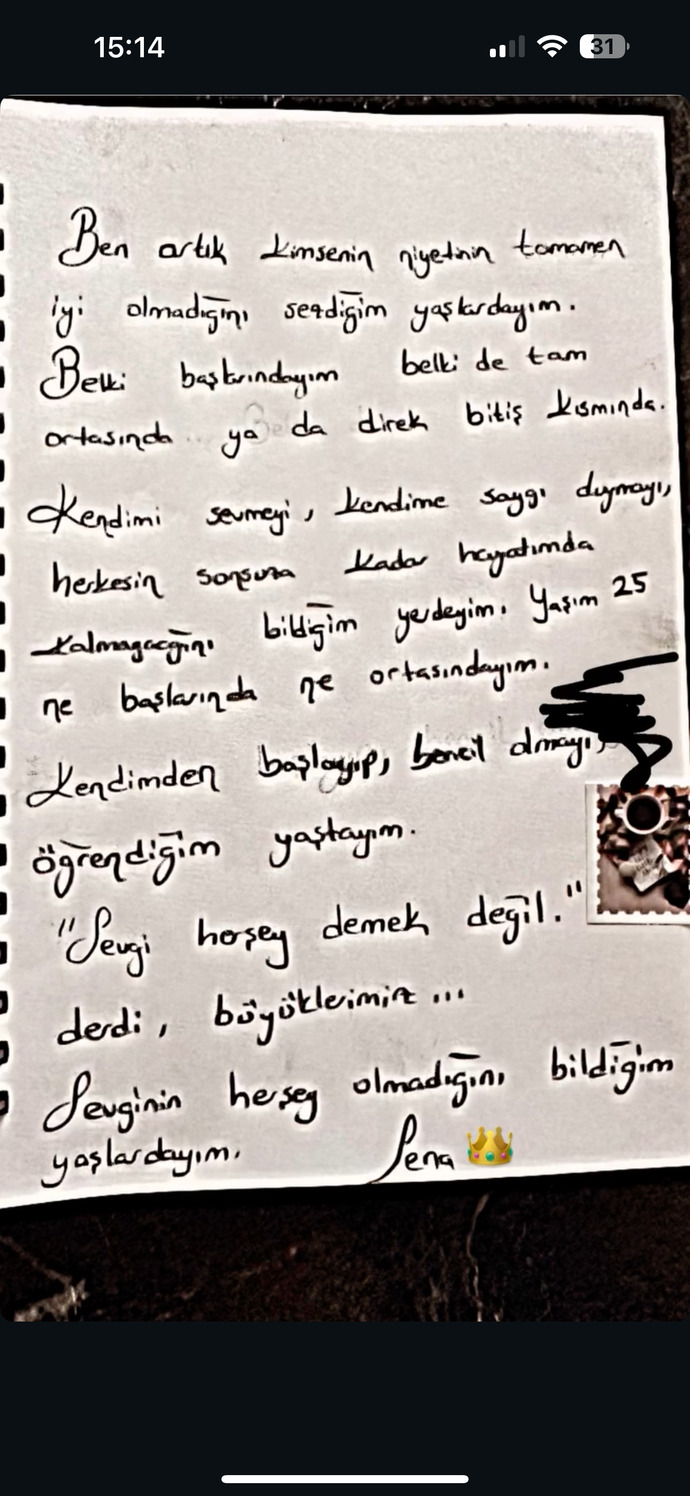 15:14
31
Ben artık kimsenin niyetinin tamamen
iyi olmadığını sezdiğim yaşlardayım.
Belki başlarındayım belki de tam
ortasında ya da direk bitiş kısmında.
Kendimi sevmeyi, kendime saygı duymayı,
herkesin sonsuza kadar hayatımda
kalmayacağını bildiğim yerdeyim. Yaşım 25
ne başlarında ne ortasındayım.
Kendimden başlayıp, bencil olmayı,
öğrendiğim yaştayım.
"Sevgi herşey demek değil."
derdi, büyüklerimiz...
Sevginin herşey olmadığını bildiğim
yaşlardayım. Sena